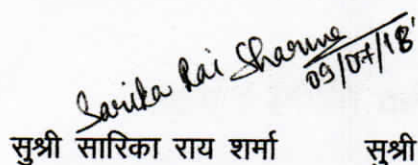 Sarika Rai Sharma
09/07/18
सुश्री सारिका राय शर्मा सुश्री